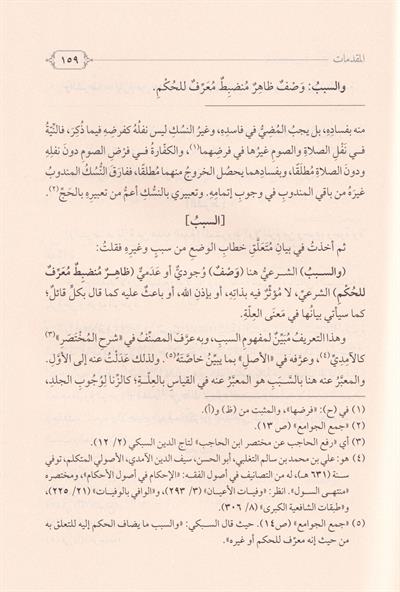 المقدمات
١٥٩
والسببُ: وَصْفٌ ظاهِرٌ مُنضبِطٌ مُعَرِّفٌ للحُكْمِ.
منه بفسادِهِ، بل يجبُ المُضِيُّ في فاسدِهِ، وغيرُ النسُكِ ليس نفلُهُ كفرضِهِ فيما ذُكِرَ، فالنِّيَّةُ
في نَفْلِ الصلاةِ والصومِ غيرُها في فرضِهما(١)، والكفَّارةُ في فرْضِ الصومِ دونَ نفلِهِ
ودونَ الصلاةِ مُطْلَقًا، وبفسادِهما يحصُل الخروجُ منهما مُطلَقًا، ففارَقَ النُّسُكُ المندوبُ
غيرَهُ من باقي المندوبِ في وجوبِ إتمامِهِ. وتعبيري بالنُّسُك أعمُّ من تعبيرِه بالحَجِّ(٢).
[السببُ]
ثم أخذتُ في بيانِ مُتَعلَّقِ خطابِ الوضعِ من سببٍ وغيرِهِ فقلتُ:
(والسببُ) الشرعيُّ هنا (وَصْفٌ) وُجوديٌّ أو عَدَميٌّ (ظاهِرٌ مُنضبِطٌ مُعَرِّفٌ
للحُكْمِ) الشرعيِّ، لا مُؤثِّرٌ فيه بذاتِهِ، أو بإذنِ الله، أو باعثٌ عليه كما قال بكلٍّ قائلٌ؛
كما سيأتي بيانُها في معنَى العِلّةِ.
وهذا التعريفُ مُبَيِّنٌ لمفهومِ السببِ، وبه عرَّفَ المصنِّفُ في «شرحِ المُخْتَصَرِ»(٣)
كالآمِدِيِّ(٤)، وعرَّفه في «الأصلِ» بما يبيِّنُ خاصّتَهُ(٥). ولذلك عَدَلْتُ عنه إلى الأوَّلِ.
والمعبَّرُ عنه هنا بالسَّببِ هو المعبَّرُ عنه في القياسِ بالعِلَّةِ؛ كالزِّنا لِوُجُوبِ الجلدِ،
(١) في (ح): «فرضها»، والمثبت من (ظ) و(أ).
(٢) «جمع الجوامع» (ص١٣).
(٣) أي «رفع الحاجب عن مختصر ابن الحاجب» لتاج الدين السبكي (٢/ ١٢).
(٤) هو: علي بن محمد بن سالم التغلبي، أبو الحسن، سيف الدين الآمدي، الأصولي المتكلم، توفي
سنة (٦٣١ هـ)، له من التصانيف في أصول الفقه: «الإحكام في أصول الأحكام»، ومختصره
«منتهى السول». انظر: «وفيات الأعيان» (٣/ ٢٩٣)، و«الوافي بالوفيات» (٢١/ ٢٢٥)،
و«طبقات الشافعية الكبرى» (٨/ ٣٠٦).
(٥) «جمع الجوامع» (ص١٤). حيث قال السبكي: «والسبب ما يضاف الحكم إليه للتعلق به
من حيث إنه معرِّف للحكم أو غيره».